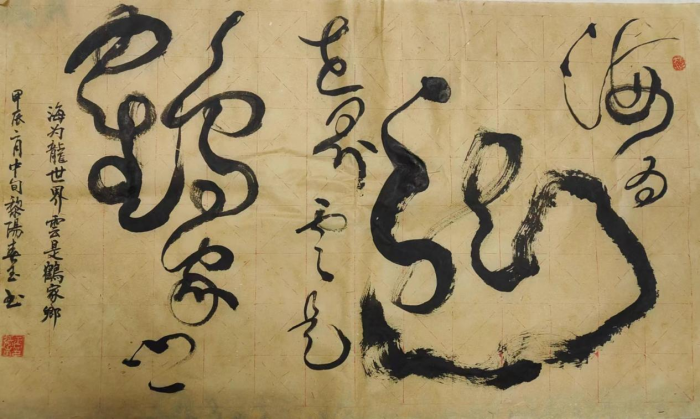 海为
龍
世界雲是
鶴家
乡
海为龍世界雲是鶴家鄉
甲辰二月中旬黎陽春玉书